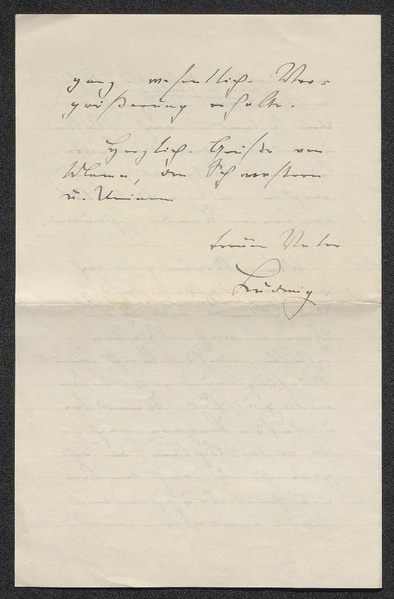 ganz wesentliche Ver-
größerung erhalte.
Herzliche Grüße von
Mama, den Schwestern
u. Deinem
treuen Vater
Ludwig